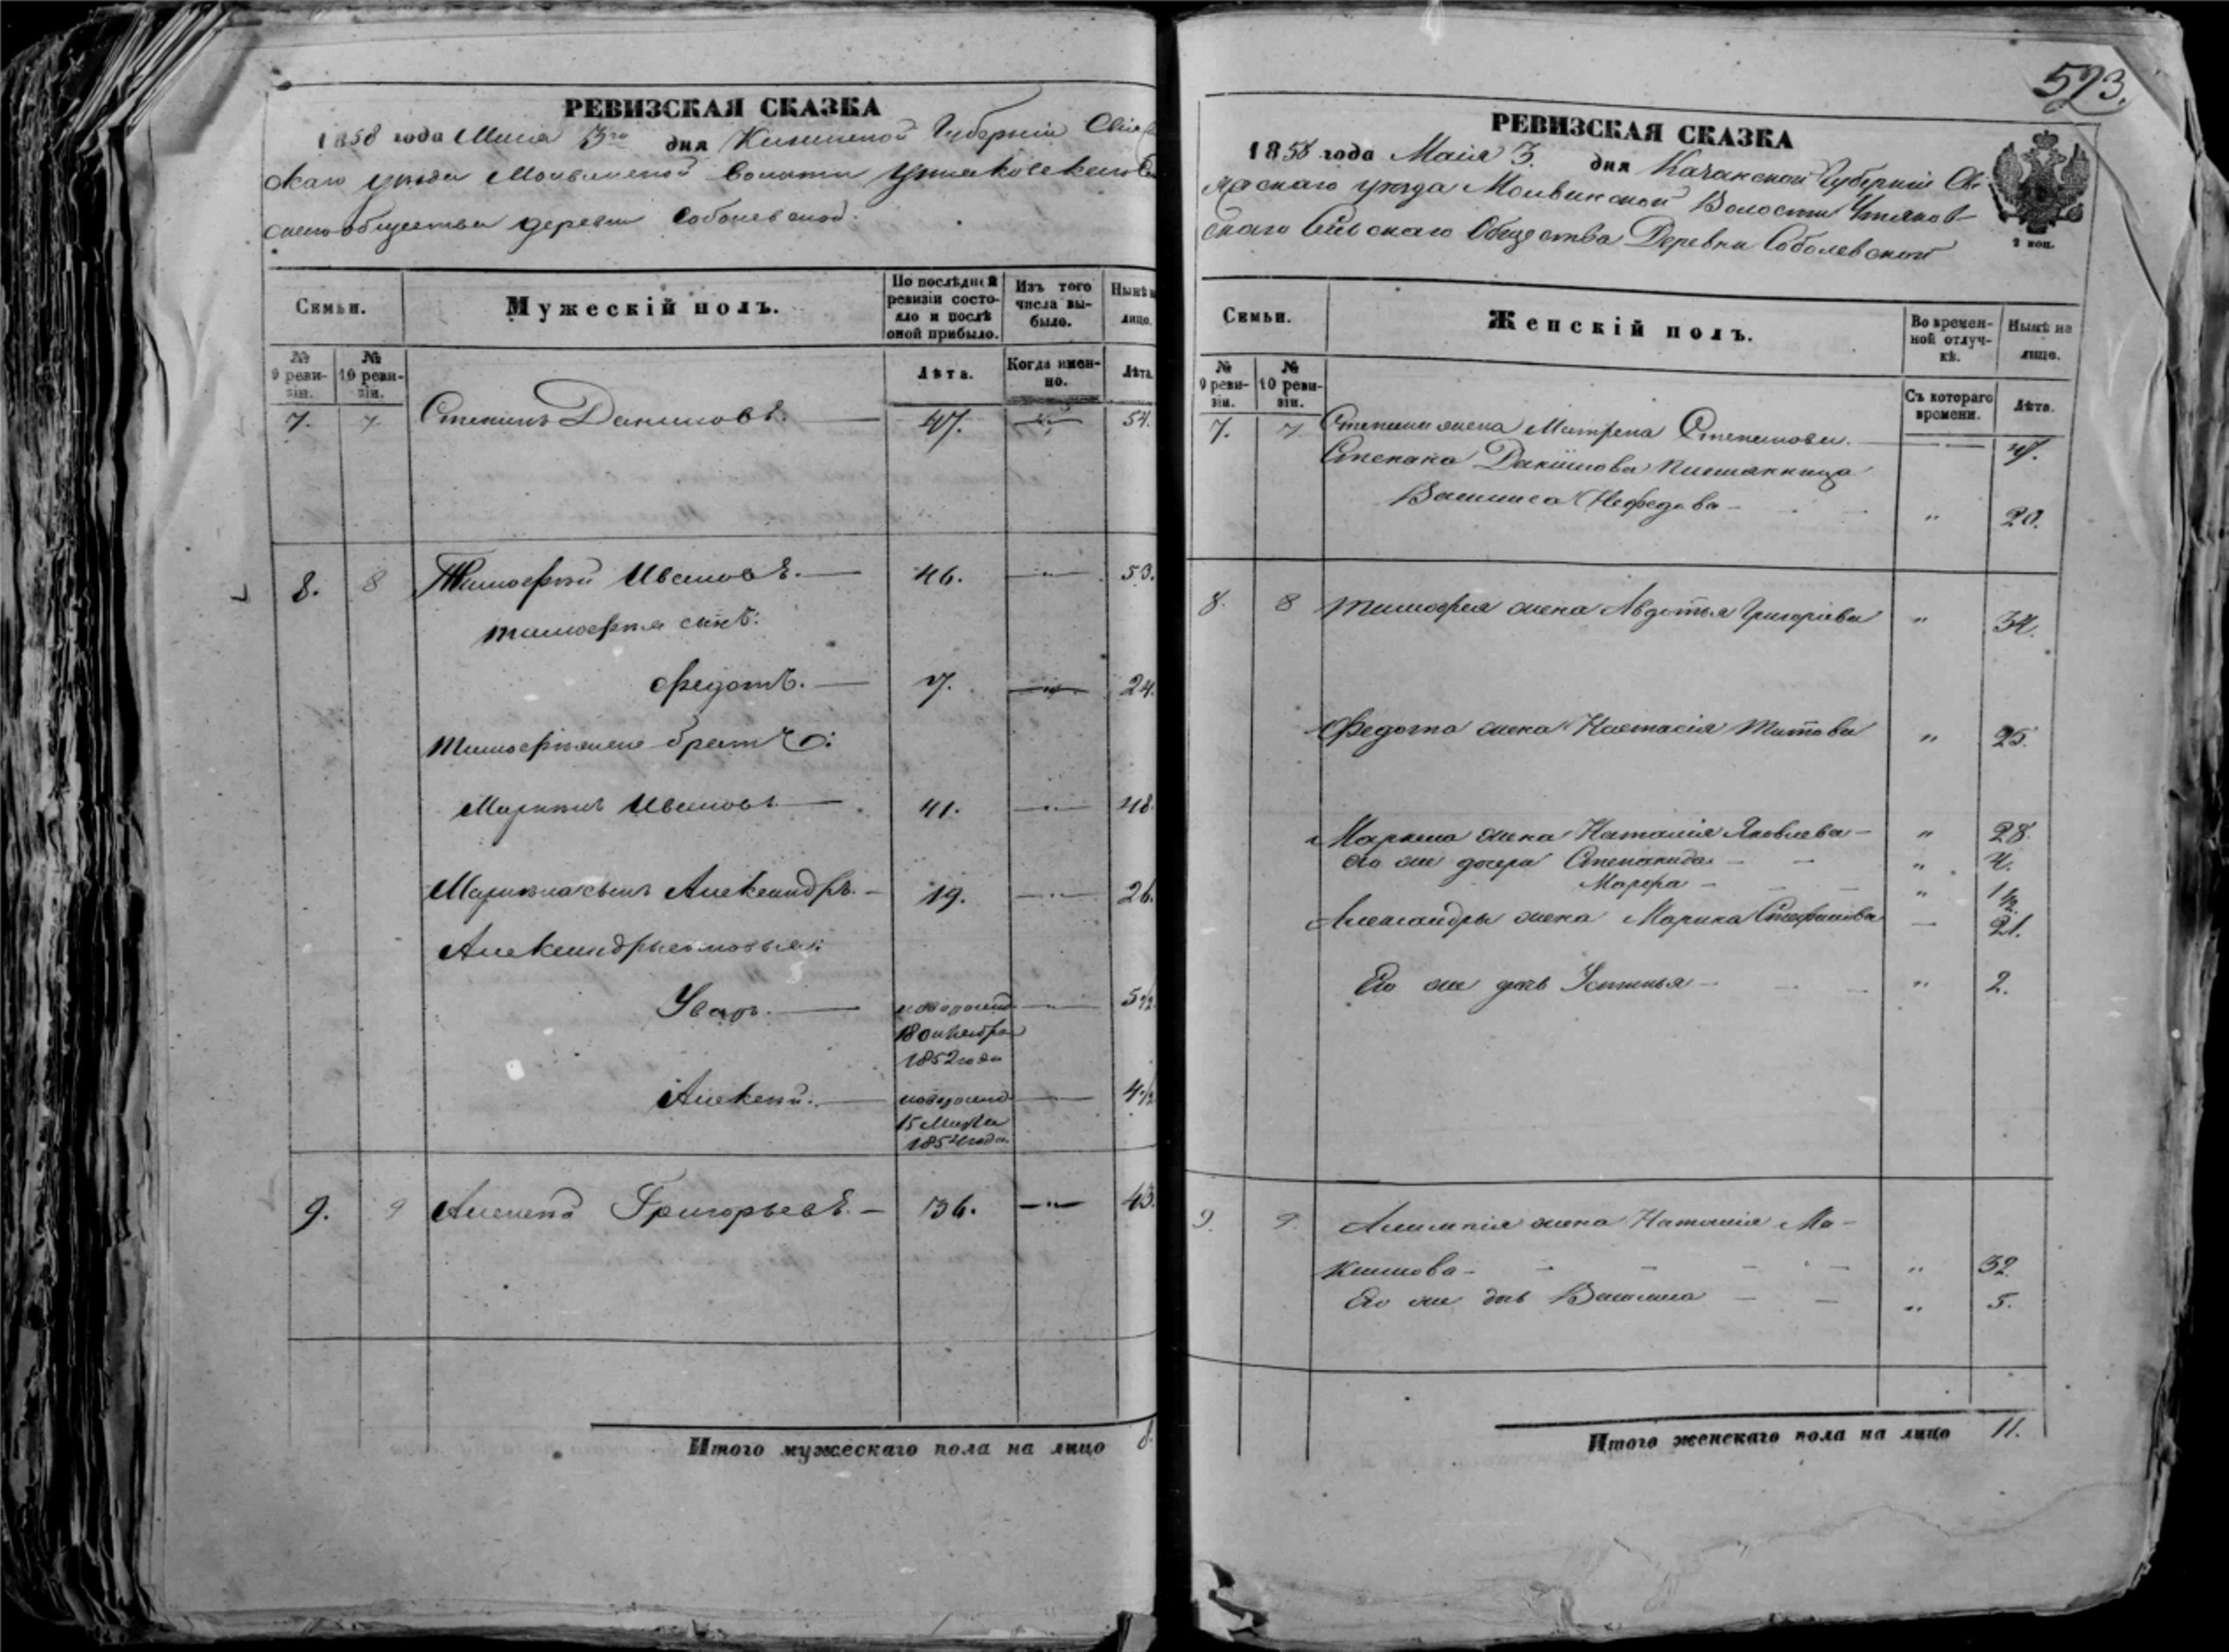 РЕВИЗСКАЯ СКАЗКА
1858 года Маия 3го дня Казанской Губернiи Свiя
скаго уѣзда Моланской Волости
скаго общества деревни Соболевской.
Семьи.
Мужескiй полъ.
По послѣдней ревизiи состояло и послѣ оной прибыло.
Изъ того числа выбыло.
Нынѣ на лицо.
№ 9 ревизiи.
№ 10 ревизiи.
Лѣта.
Когда именно.
Лѣта.
7. 7 Степанъ Даниловъ. — 47. — " — 54.
8. 8 Тимофей Ивановъ. — 46. — " — 53.
Тимофѣя сынъ:
Федотъ. — 7. — " — 24.
Тимофѣя братъ:
Маркелъ Ивановъ — 41. — " — 48.
Маркела сынъ Александръ. — 19. — " — 26.
Александра сыновья:
Уваръ. — новорожд — " — 5 1/2
18 октября
1852 года
Алексей. — новорожд — " — 4 1/2
15 Марта
1854 года.
9. 9 Григорьевъ. — 36. — " — 43.
Итого мужескаго пола на лицо 8.
593.
РЕВИЗСКАЯ СКАЗКА
1858 года Маiя 3. дня Казанской Губернiи Свi-
яжскаго уѣзда Молвинской Волости Утяков-
скаго Сельскаго Общества Деревни Соболевской
2 коп.
Семьи.
Женскiй полъ.
Во временной отлучкѣ.
Нынѣ на лицо.
№ 9 ревизiи.
№ 10 ревизiи.
Съ котораго времени.
Лѣта.
7. 7 Степана жена Матрена Степанова. — 47.
Степана Данилова питанница
Василиса Нефедова — " 20.
8. 8 Тимофея жена Авдотья Григорiева " 34.
Федота жена Настасiя Титова " 25.
Маркела жена Наталiя Яковлева — " 28.
Его же дочери Степанида — " 4.
Марфа — " 1 1/2
Александры жена Марина Стефанова — 21.
Его же дочь Устинья — " 2.
9. 9. Алимпiя жена Наталiя Ма-
кимова — " 32.
Его же дочь Василиса — " 5.
Итого женскаго пола на лицо 11.